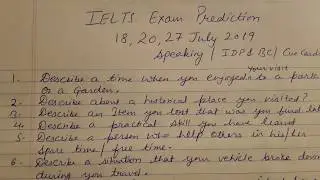 IELTS Exam Prediction
18, 20, 27 July 2019
Speaking / IDP & BC / Cue Cards
your visit
1. Describe a time when you enjoyed to a park
or a Garden.
2. Describe about a historical place you visited?
3. Describe an Item you lost that was you find lat
4. Describe a practical skill you have learnt
5. Describe a person who help others in his/her
spare time / free time.
6. Describe a situation that your vehicle broke down
during you travel.